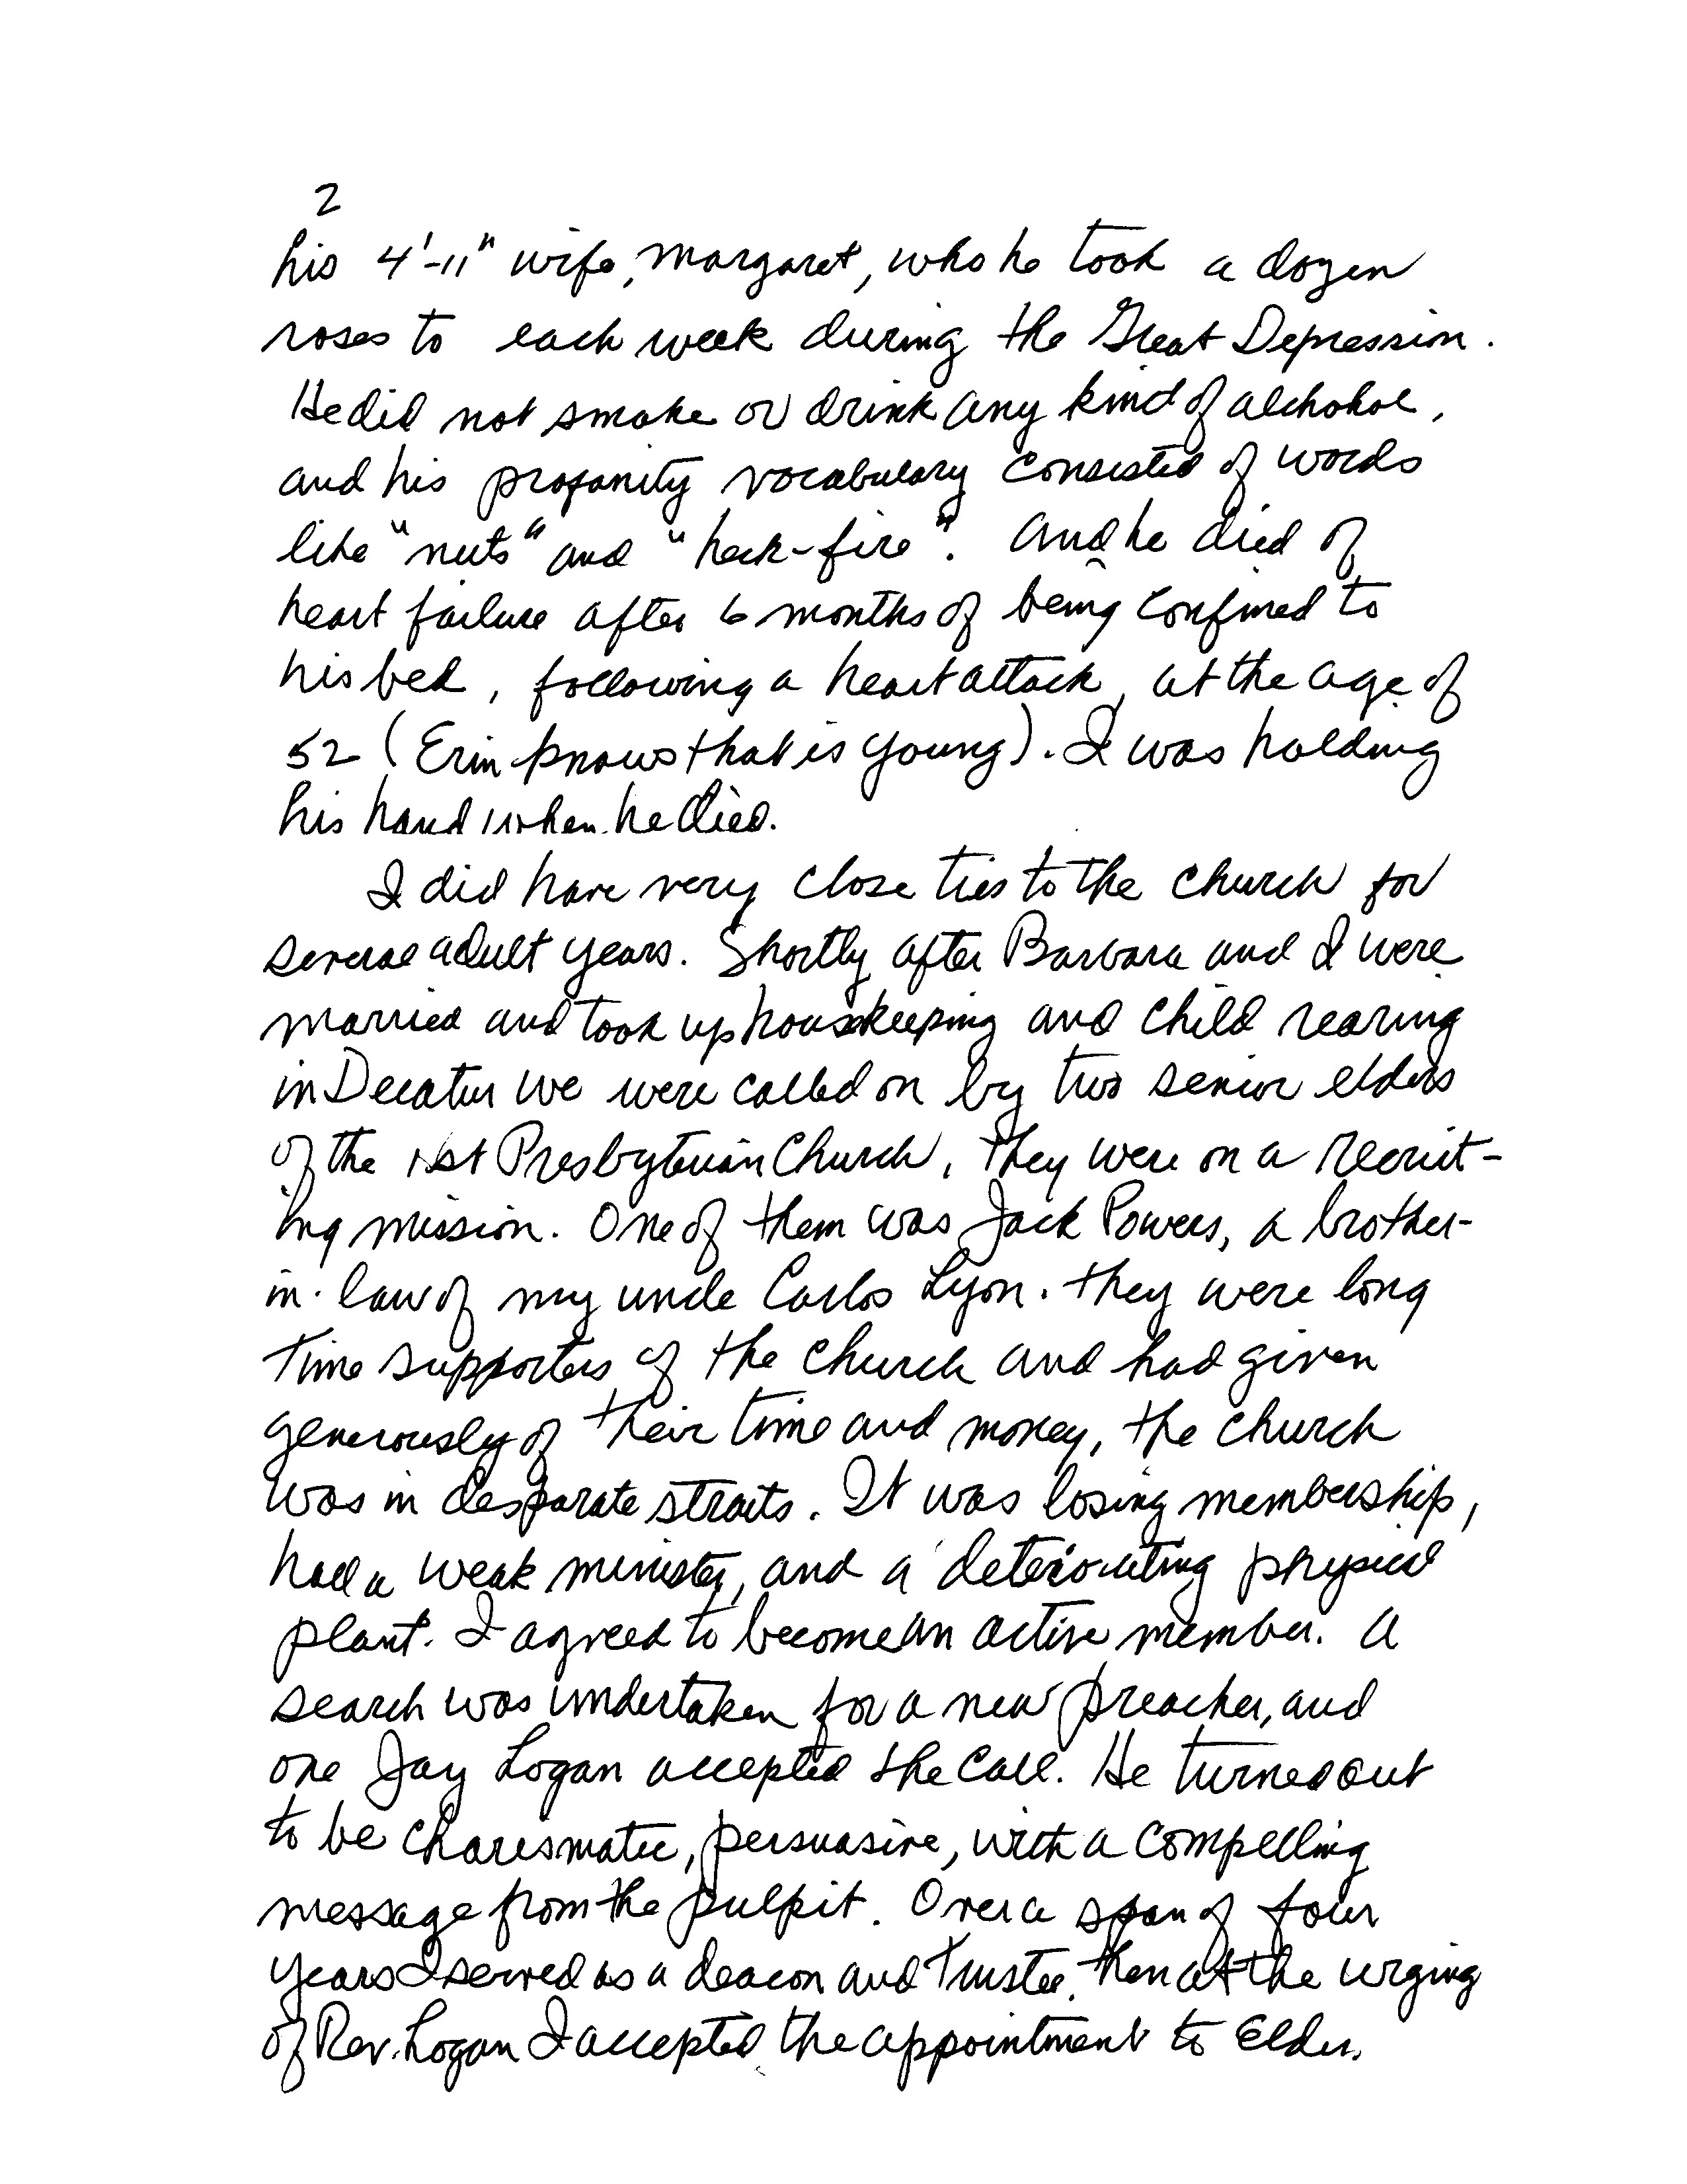 2
his 4'-11" wife, Margaret, who he took a dozen
roses to each week during the Great Depression.
He did not smoke or drink any kind of alchohol,
and his profanity vocabulary consisted of words
like "nuts" and "heck-fire". And he died of
heart failure after 6 months of being confined to
his bed, following a heart attack, at the age of
52 (Erin knows that is young). I was holding
his hand when he died.
I did have very close ties to the church for
several adult years. Shortly after Barbara and I were
married and took up housekeeping and child rearing
in Decatur we were called on by two senior elders
of the 1st Presbyterian Church, they were on a recruit-
ing mission. One of them was Jack Powers, a brother-
in-law of my uncle Carlos Lyon. They were long
time supporters of the church and had given
generously of their time and money, the church
was in desparate straits. It was losing membership,
had a weak minister, and a deteriorating physical
plant. I agreed to become an active member. A
search was undertaken for a new preacher, and
one Jay Logan accepted the call. He turned out
to be charesmatic, persuasive, with a compelling
message from the pulpit. Over a span of four
years I served as a deacon and Trustee, then at the urging
of Rev. Logan I accepted the appointment to Elder.